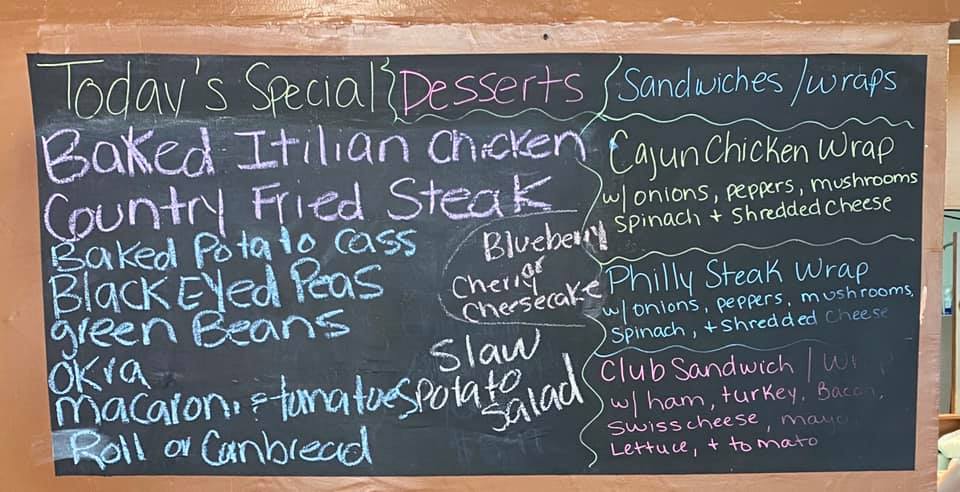 Today's Special
Baked Itilian Chicken
Country Fried Steak
Baked Potato Cass
Black Eyed Peas
green Beans
okra
macaroni & tomatoes
Roll or Cornbread
Desserts
Blueberry
or
Cherry
Cheesecake
Slaw
potato
Salad
Sandwiches / wraps
Cajun Chicken Wrap
w/ onions, peppers, mushrooms
spinach + shredded cheese
Philly Steak Wrap
w/ onions, peppers, mushrooms,
spinach, + shredded cheese
Club Sandwich /
w/ ham, turkey, Bacon,
Swiss cheese, mayo
Lettuce, + tomato